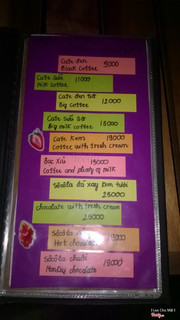 Cafe đen 9000
Black coffee
Cafe sữa 11000
milk coffee
Cafe đen lớn 12000
Big coffee
Cafe sữa lớn 15000
Big milk coffee
Cafe Kem 19000
coffee with fresh cream
Bạc Xỉu 15000
coffee and plenty of milk
Sôcôla đá xay Kem tươi
25000
chocolate with fresh cream
25000
Hot chocolate
Sôcôla sữa
Monkey chocolate